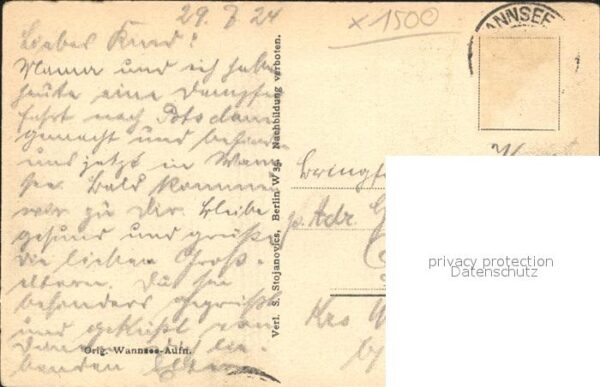 29. 7. 24
x 1500
ANNSEE
Liebes Kind!
Mama und ich haben
heute eine Dampfer
fahrt nach Potsdam
gemacht und befinden
uns jetzt in Wann
see. Bald kommen
wir zu Dir. Bleibe
gesund und grüße
die lieben Groß-
eltern. Du sei
besonders gegrüßt
und geküßt von
Deinen lie-
benden Eltern
Orig. Wannsee-Aufn.
Verl. S. Stojanovics, Berlin W 35. Nachbildung verboten.
p. Adr.
privacy protection
Datenschutz